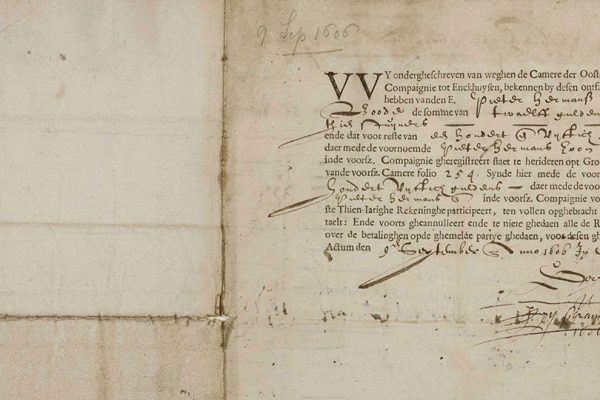 9 Sep 1606
WY ondergheschreven van weghen de Camere der Oost
Compagnie tot Enckhuysen, bekennen by desen ontfa
hebben vanden E. Pieter Hermansz
de somme van twaelff gulden
ende dat voor reste van hondert
daer mede de voornoemde Pieter Hermans
inde voorsz. Compagnie gheregistreert staet te herideren opt Gro
vande voorsz. Camere folio 254. Synde hier mede de voor
hondert guldens daer mede de voo
Pieter Hermans inde voorsz. Compagnie vo
ste Thien-Iarighe Rekeninghe participeert, ten vollen opghebracht
taelt: Ende voorts gheannulleert ende te niete ghedaen alle de R
over de betalinghen opde ghemelde partye ghedaen, voor desen gh
Actum den 9 September Anno 1606